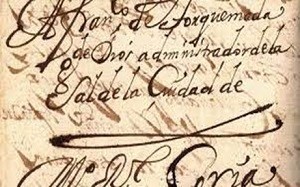 Al fran co de torquemada
de Dios administrador dela
Sal de la Ciudad de
Soria